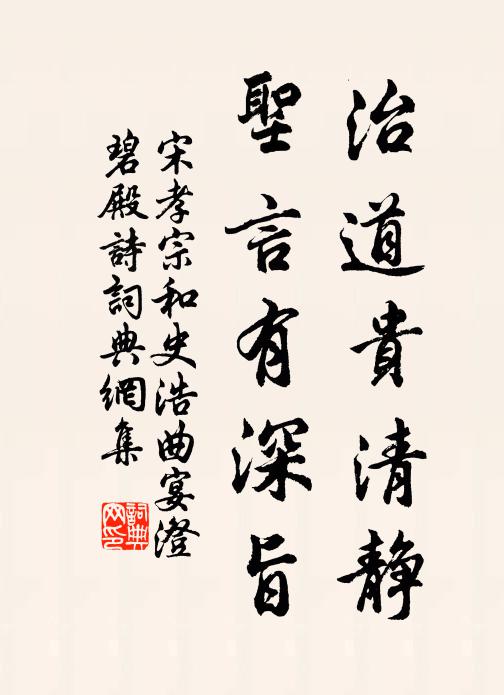 治道貴清静
聖言有深旨
宋孝宗和史浩曲宴澄
碧殿詩詞典網集
詞典
网印